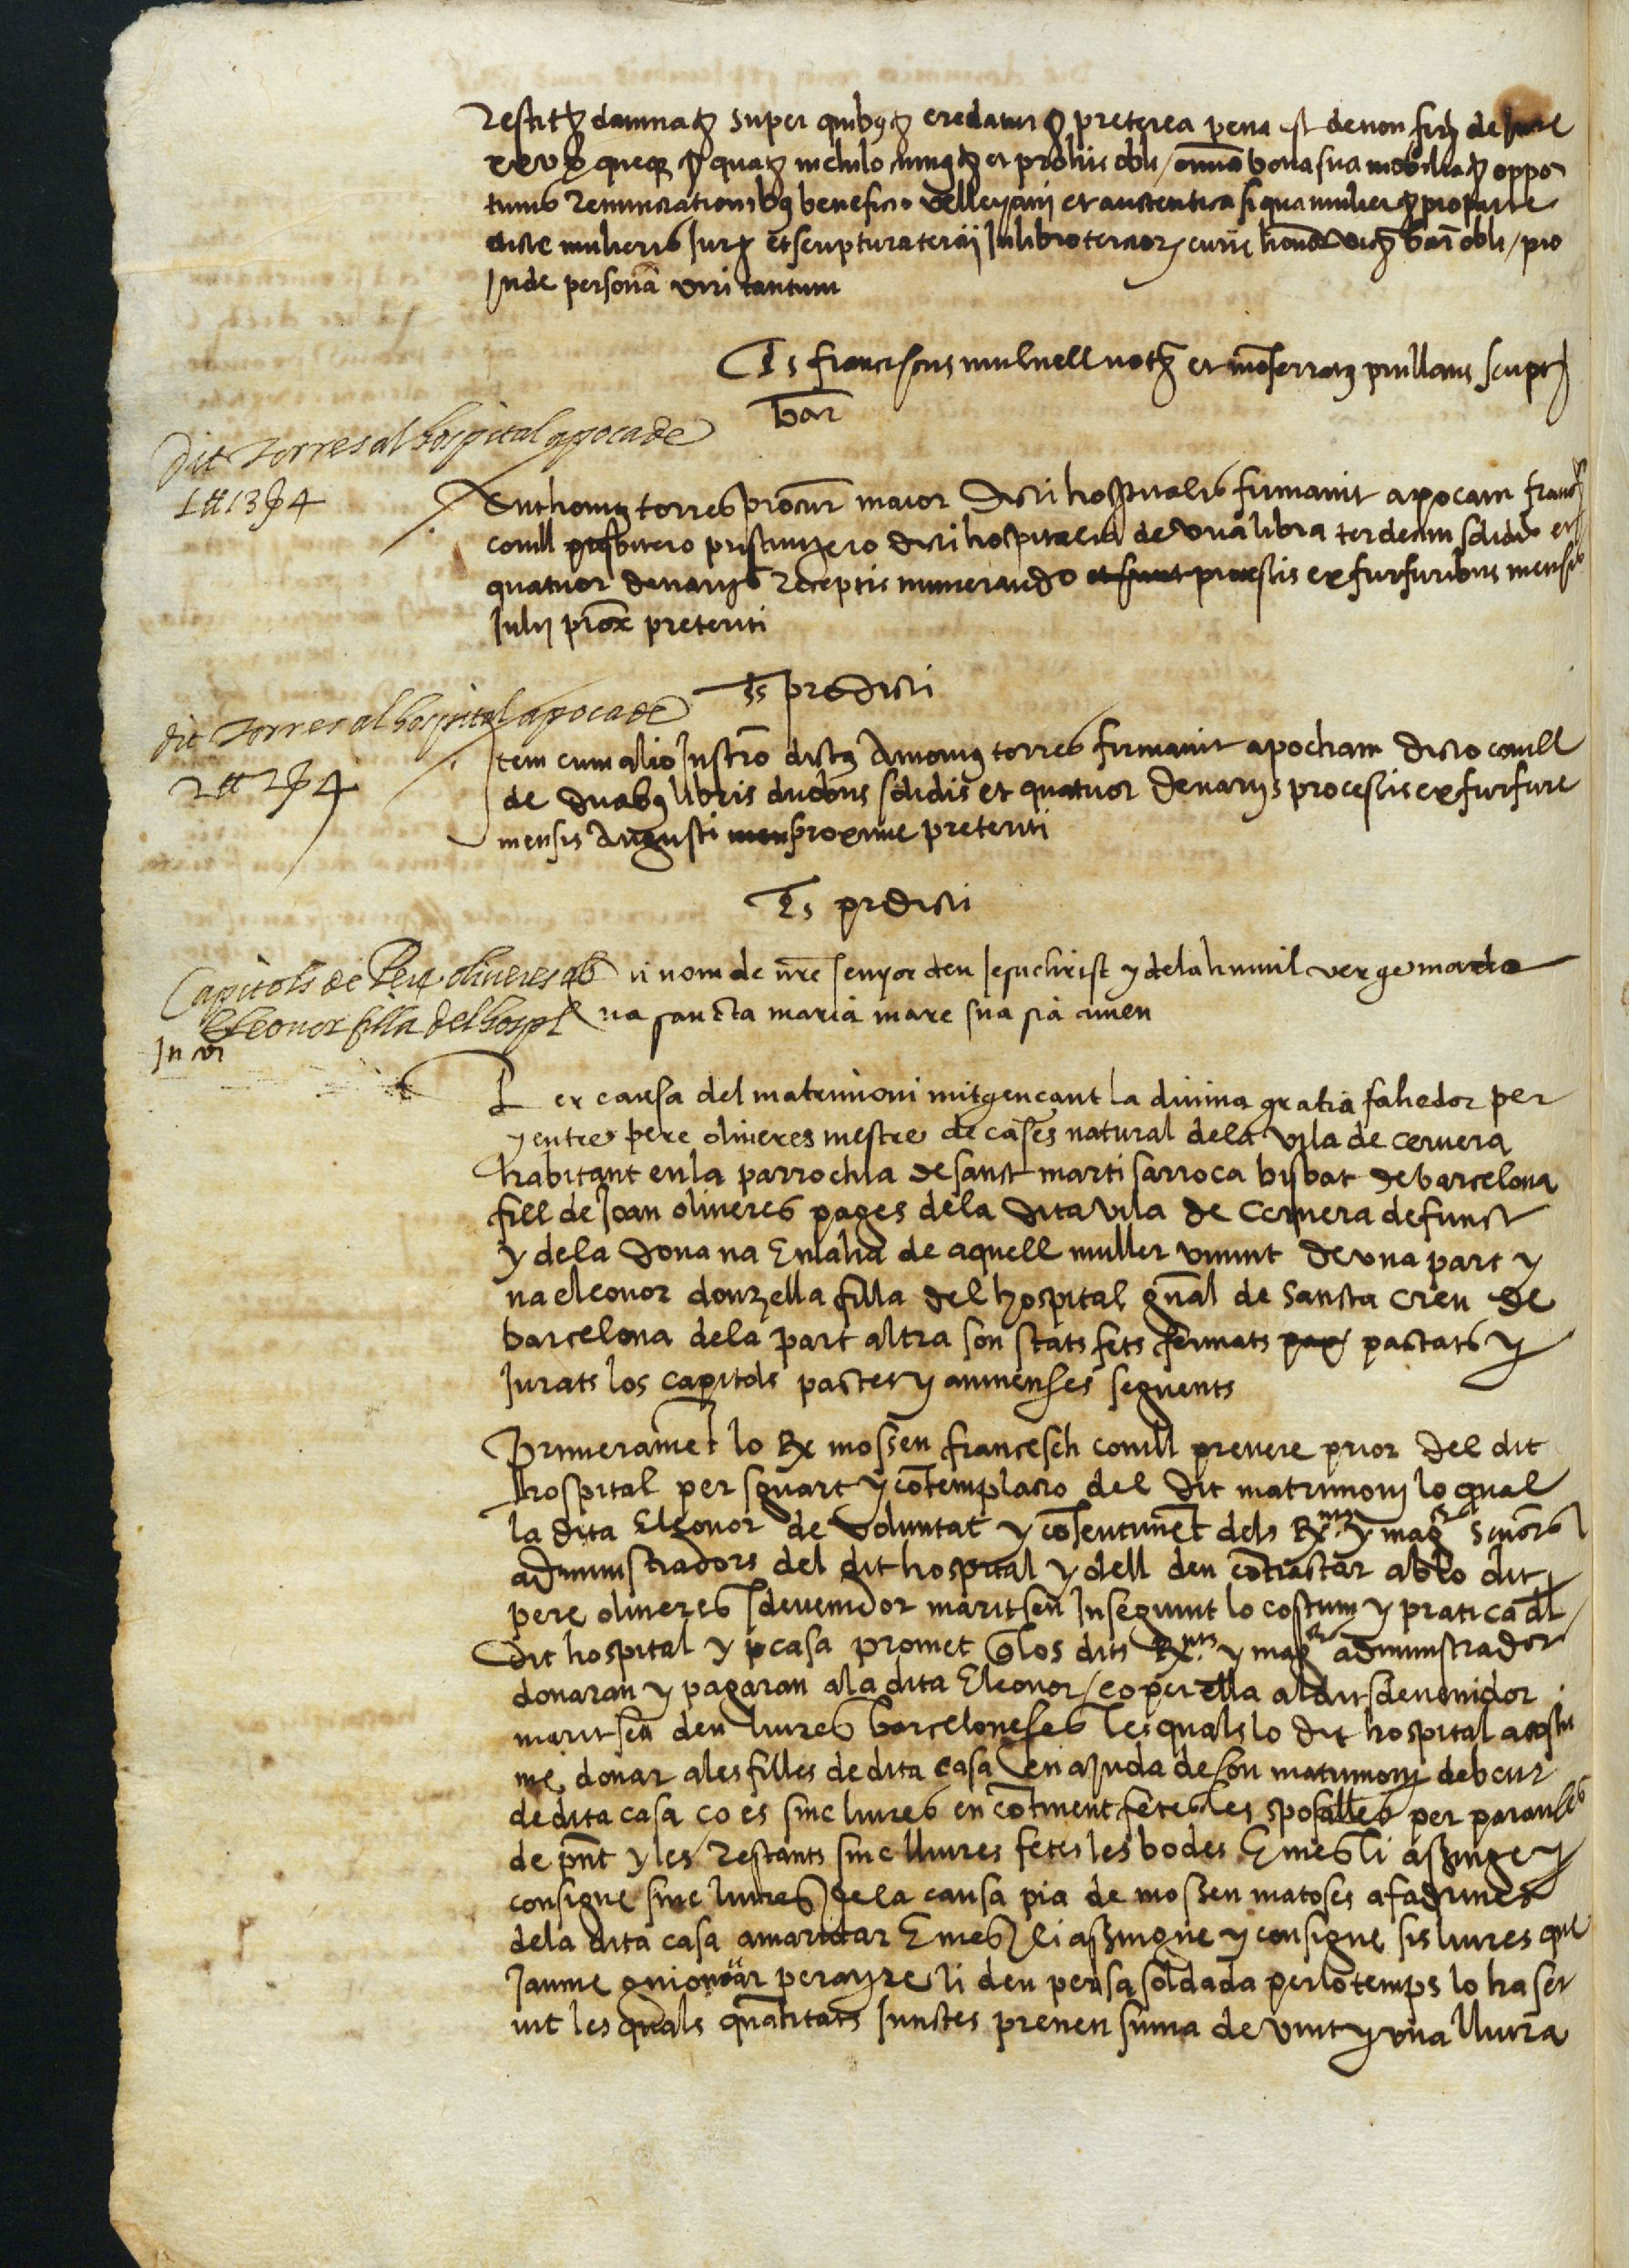 tum̃s renunciationibus beneficio velleyani et auctentica si qua mulier
Inde personã viri tantum
Ts franciscus mulnell
bar
dit torres al hospital apoca de
1 ll 13 ß 4
Anthonius torres procur maior dicti hospitalis firmavit apocam
conill presbitero dicti hospitalis de una libra terdecim solidis et
quatuor denarijs receptis numerando ex furfuribus mensis
Julij prox preteriti
Ts predicti
dit torres al hospital apoca de
2 ll 2 ß 4
Item cum alio Instro dictus Antonius torres firmavit apocham dicto conill
de duabus libris duobus solidis et quatuor denarijs processis ex furfure
mensis Augusti proxime preteriti
Ts predicti
Capitols de Pere oliveres ab
Eleonor filla del hospl
n nom de nr̃e senyor deu Jesuchrist y dela humil verge mado
na sancta maria mare sua sia amen
Per causa del matrimoni mitgençant la divina gratia fahedor per
y entre pere oliveres mestre de cases natural dela vila de cervera
habitant en la parrochia de sanct marti sarroca bisbat de barcelona
fill de Joan oliveres pages dela dita vila de Cervera defunct
y dela dona na Eulalia de aquell muller vivint de una part y
na eleonor donzella filla del hospital gñal de Sancta Creu de
barcelona dela part altra son stats fets fermats pactats y
Jurats los capitols pactes y avinenses seguents
Primeramet lo Rx mossen francesch conill prevere prior del dit
hospital per sguart y cõtemplacio del dit matrimonj lo qual
la dita Eleonor de voluntat y cõsentiment dels Rx.nts y magchs sñors
administradors del dit hospital y dell deu cõtractar ab lo dit
pere oliveres sdevenidor marit seu Inseguint lo costum y pratica dl
dit hospital y casa promet q los dits Rx.nts y magchs administradors
donaran y pagaran a la dita Eleonor / eo per ella al dit sdevenidor
marit seu deu liures barceloneses les quals lo dit hospital acostu
me donar a les filles de dita casa en ajuda de son matrimonj
de dita casa ço es sinc liures en cõtinent fetes les sposalles per paraules
de pñt y les restants sinc lliures fetes les bodes E mes li assigne y
consigne sinc liures de la causa pia de mossen matoses a fadrines
dela dita casa a maridar E mes li assigne y consigne sis liures que
Jaume perayre li deu per sa soldada per lo temps lo ha ser
vit les quals quãtitats Junctes prenen suma de vint y una lliura